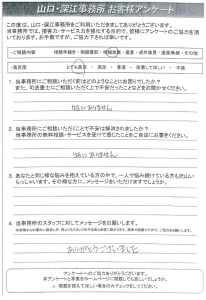 山口・深江事務所 お客様アンケート
この度は、山口・深江事務所をご利用いただきましてありがとうございます。
当事務所では、接客力・サービス力を強化する目的で、皆様にアンケートのご協力を頂いております。お手数ですが、ご協力下されば幸いです。
・ご相談内容
・満足度 とても満足 ・ 満足 ・ 普通 ・ 改善してほしい ・ 不良
1. 当事務所にご相談いただく前はどのようなことにお困りでしたか？
また、司法書士にご相談いただく上で不安だったことなどをお聞かせください。
特にありません
2. 当事務所にご相談いただいたことで不安は解消されましたか？
当事務所の無料相談・サービスを受けて感じたことをご自由にお書きください。
特にありません
3. あなたと同じ様な悩みを抱えている方の中で、一人で悩み続けている方も沢山いらっしゃいます。その様な方に、メッセージをいただけますでしょうか？
4. 当事務所のスタッフに対してメッセージをお願いします。
ありがとうございました
アンケートへのご協力ありがとうございます。